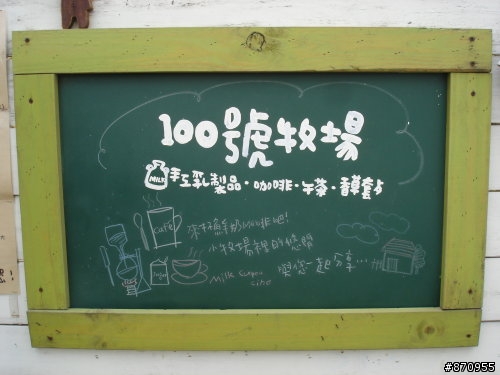 100號牧場
MILK
手工乳製品·咖啡·午茶·香草餐點
café
來杯鮮奶咖啡吧!
小牧場裡的悠閒
與您一起分享...
sugar
#870955